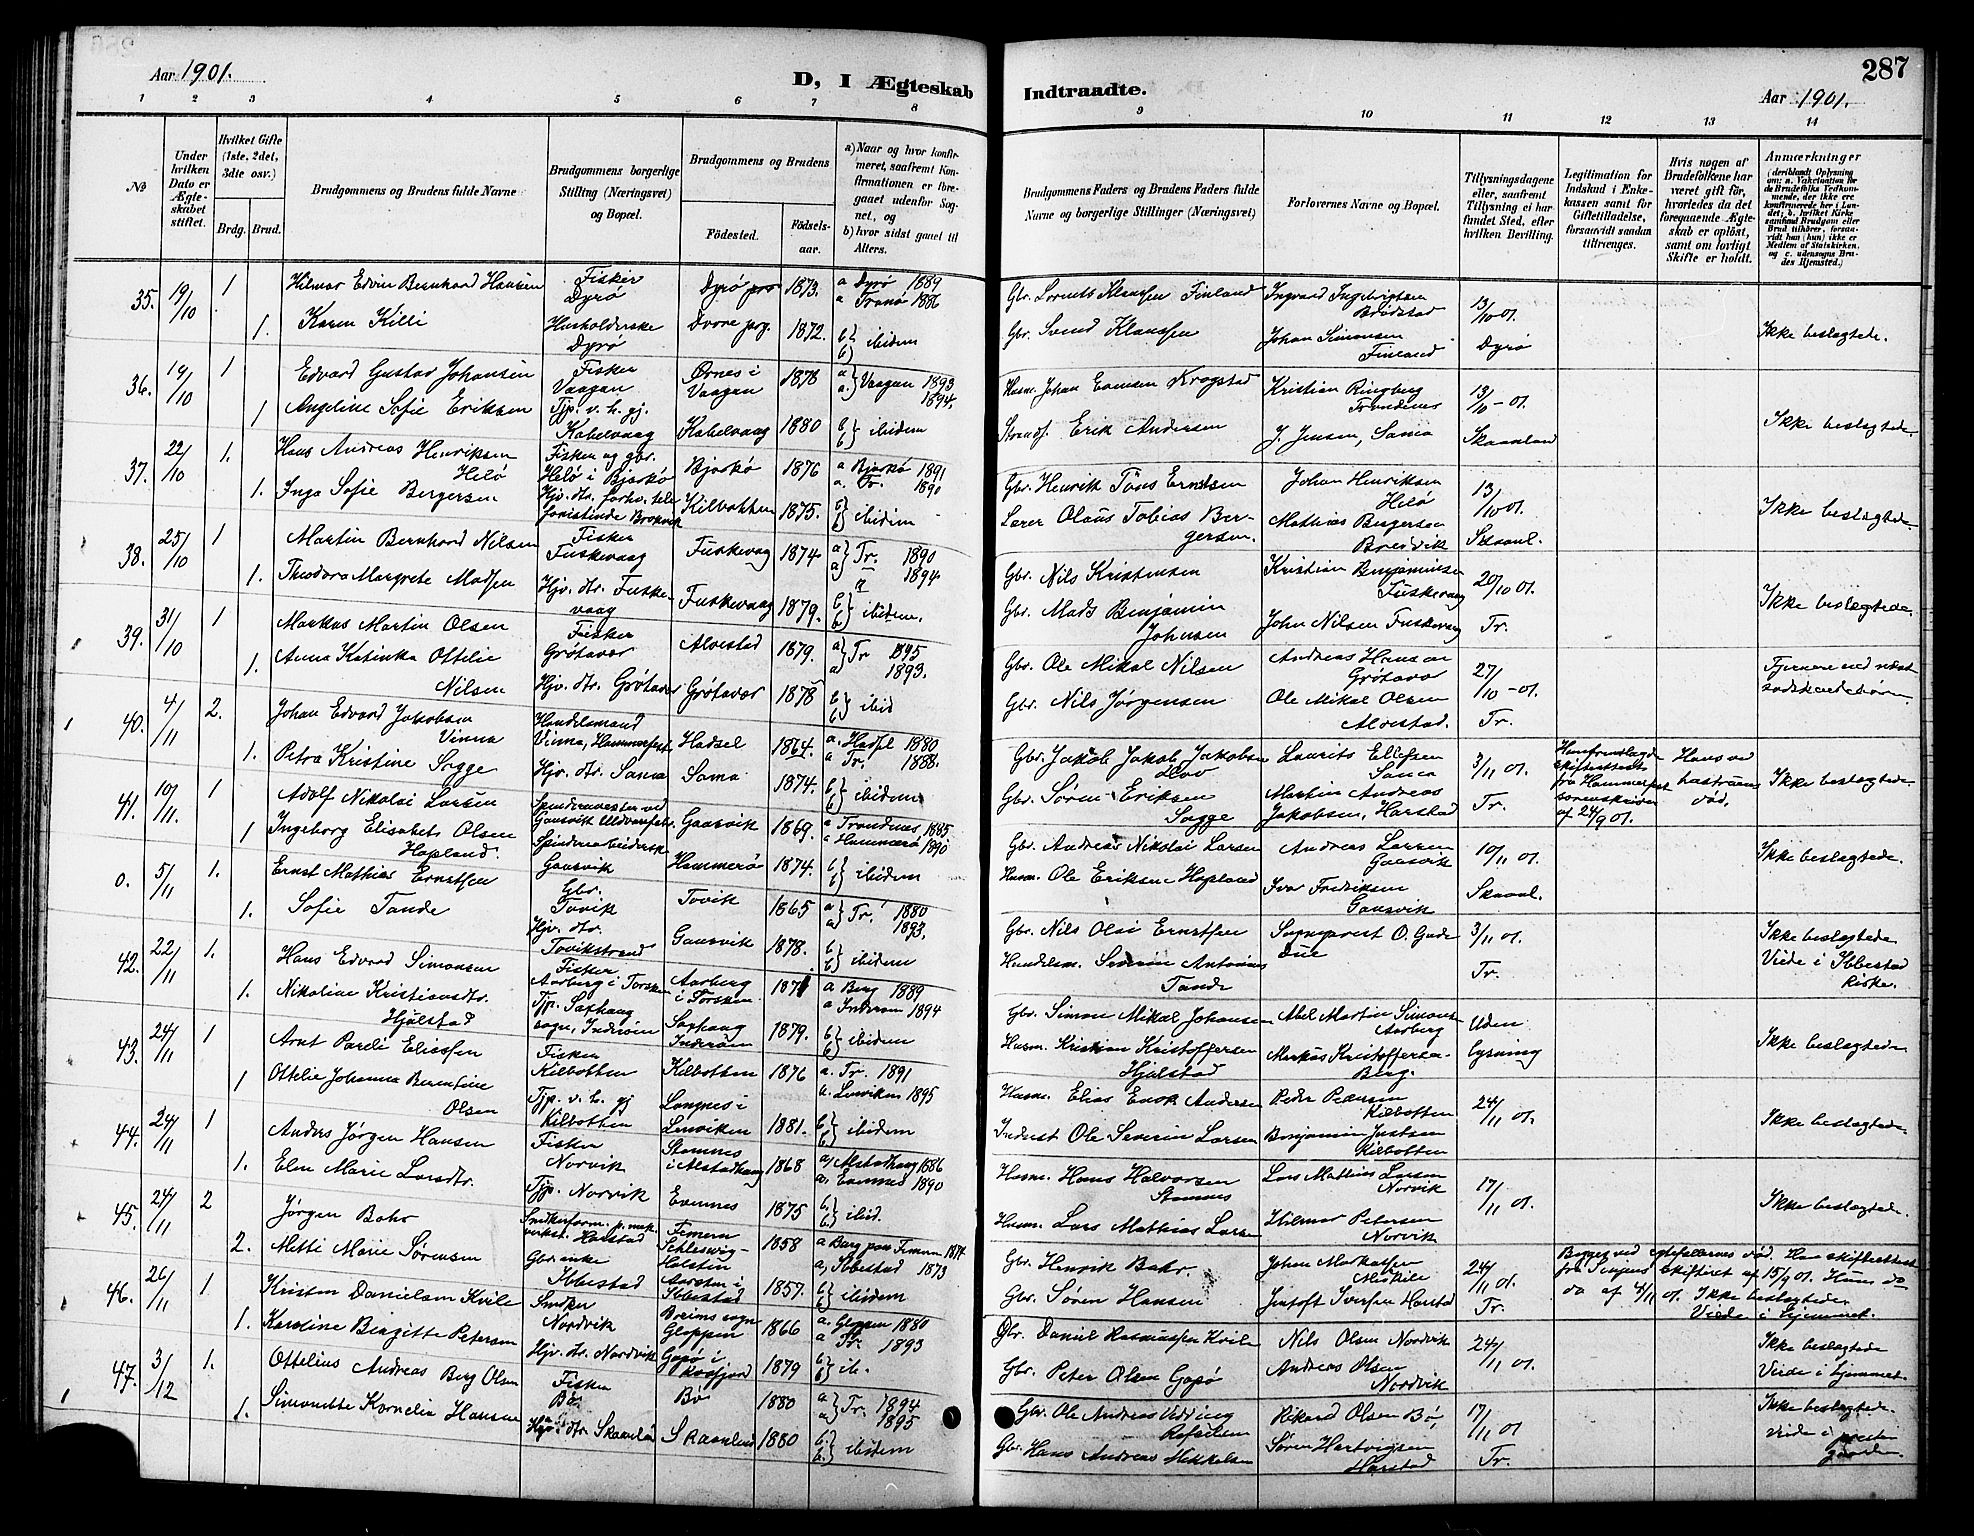 287
Aar 1901.
D, I Ægteskab Indtraadte.
Aar 1901.
1 2 3 4 5 6 7 8 9 10 11 12 13 14
No
Under hvilken Dato er Ægteskabet stiftet.
Hvilket Gifte (1ste, 2det, 3die osv.)
Brdg. Brud.
Brudgommens og Brudens fulde Navne
Brudgommens borgerlige Stilling (Næringsvei) og Bopæl.
Brudgommens og Brudens
Fødested.
Fødselsaar.
a) Naar og hvor konfirmeret, saafremt Konfirmationen er foregaaet udenfor Sognet, og
b) hvor sidst gaaet til Alters.
Brudgommens Faders og Brudens Faders fulde Navne og borgerlige Stillinger (Næringsvei)
Forlovernes Navne og Bopæl.
Tillysningsdagene eller, saafremt Tillysning ei har fundet Sted, efter hvilken Bevilling.
Legitimation for Indskud i Enkekassen samt for Giftetilladelse, forsaavidt saadan tiltrænges.
Hvis nogen af Brudefolkene har været gift før, hvorledes da det foregaaende Ægteskab er opløst, samt om lovligt Skifte er holdt.
Anmærkninger (deriblandt Oplysning om: a. Vaksination for de Brudefolks Vedkommende, der ikke ere konfirmerede her i Landet; b. hvilket Kirkesamfund Brudgom eller Brud tilhører, forsaavidt han (hun) ikke er Medlem af Statskirken, og c. udensogns Brudes Hjemsted.)
35. 19/10 1 Hilmar Edvin Bernhard Hansen Fisker Dyrø Dyrø 1873. a Dyrø 1889 Gbr. Lorents Klaussen Finland Ingvard Ingebrigtsen Brødstad 13/10 01.
1. Karen Killi Husholderske Dyrø Dovre prg. 1872. a Tranø 1886 b) b) ibidem Gbr. Svend Klaussen Johan Simonsen Finland Dyrø Ikke beslagtede.
36. 19/10 1 Edvard Gustav Johansen Fisker Vaagan Ørnes i Vaagan 1878 a a.} Vaagan 1893 1894. Husm. Johan Evensen Krogstad Kristian Ringberg Trondenes 13/10 - 01.
1 Angeline Sofie Eriksen Tjp. v. h. gj. Kabelvaag Kabelvaag 1880 b b} ibidem Strands. Erik Andersen J. Jensen, Sama Skaanland Ikke beslagtede.
37. 22/10 1. Hans Andreas Henriksen Helø Fisker og gbr. Helø i Bjarkø Bjarkø 1876 a Bjarkø 1891 Gbr. Henrik Tøns Erntsen Johan Henriksen Helø 13/10 01.
1. Inga Sofie Bergersen Kilbotten 1875. a. Tr. 1890 b b} ibidem Lærer Olaus Tobias Bergersen. Mathias Bergersen Bredvik Skaanl. Ikke beslagtede
38. 25/10 1 Martin Bernhard Nilsen Fisker Fuskevaag Fuskevaag 1874 a a} Tr. 1890 1894. Gbr. Nils Kristensen Kristian Benjaminsen Fuskevaag 20/10 01.
1. Theodora Margrete Madsen Hjv. dtr. Fuskevaag Fuskevaag 1879. b b} ibidem. Gbr. Mads Benjamin Johnsen John Nilsen Fuskevaag Tr. Ikke beslagtede.
39. 31/10 1 Markus Martin Olsen Fisker Grøtavær Alvestad 1879. a a} Tr 1895 1893. Gbr. Ole Mikal Nilsen Andreas Hansen Grøtavær 27/10 - 01.
1. Anna Katinka Ottelie Nilsen Hjv. dtr. Grøtavær Grøtavær 1878 b b} ibid Gbr. Nils Jørgensen Ole Mikal Olsen Alvestad. Tr. Fjernere end næst søskendebørn
40. 4/11 2. Johan Edvard Jakobsen Vinna Handelsmand Vinna, Hammerfest Hadsel 1864. a. Hadsel 1880 Gbr. Jakob Jakob Jakobsen Laurits Ellefsen Sama 3/11 01. Har fremlagt skifteattest fra Hammerfest sorenskriver af 24/9 01. Hans ved hustruens død.
1. Petra Kristine Sogge Hjv. dtr. Sama Sama 1874. a Tr. 1888. b b} ibidem Gbr. Søren Eriksen Sogge Martin Andreas Jakobsen, Harstad Tr. Ikke beslagtede.
41. 10/11. 1 Adolf Nikolai Larsen Spinderimester ved Gausvik Uldvarefabr. Gausvik 1869. a Trondenes 1885 Gbr. Andreas Nikolai Larsen Andreas Larsen Gausvik 10/11 01.
1 Ingeborg Elisabets Olsen Hopland. Spinderiarbeiderske Gausvik Hammerø 1874. a Hammerø 1890 b b} ibidem Husm. Ole Eriksen Hopland Ivar Fredriksen Gausvik Skaanl. Ikke beslagtede.
0. 5/11 1. Ernst Mathias Ernstsen Gbr. Tovik Tovik 1865 a a} Tr. 1880 1893. Gbr. Nils Olai Ernstsen Sogneprest O. Gude Due 3/11 01.
1. Sofie Tande Hjv. dtr. Tovikstrand Gausvik 1878. b b} ibidem Handelsm. Severin Antonius Tande Tr. Ikke beslagtede Viede i Ibbestad kirke.
42. 22/11 1. Hans Edvard Simonsen Fisker Aarberg i Torsken Aarberg i Torsken a Berg 1889 Gbr. Simon Mikal Johansen Abel Martin Simons. Aarberg Uden
1. Nikoline Kristiansdtr. Hjälstad Tjp. Saxhaug sogn, Inderøen Saxhaug Inderøen 1879. a Inderøen 1894 b b} ibidem Husm. Kristian Kristoffersen Hjalstad Markus Kristoffersen Berg. lysning Ikke beslagtede
43. 24/11 1 Arnt Pareli Eliassen Fisker Kilbotten Kilbotten 1876 a. Tr. 1891 Husm. Elias Enok Andersen Peder Pedersen Kilbotten 24/11 01.
1 Ottelie Johanna Berentine Olsen Tjp. v. h. gj Kilbotten Langnes i Lenviken 1881. a. Lenviken 1895 b b} ibidem Inderst Ole Severin Larsen Benjamin Justsen Kilbotten Ikke beslagtede.
44. 24/11 1 Anders Jørgen Hansen Fisker Norvik Stamnes i Alstadhaug 1868 a) Alstadhaug 1886 Husm. Hans Halvorsen Stamnes Lars Mathias Larsen Norvik 17/11 01.
1. Elen Marie Larsdtr. Tjp. Norvik Evenes 1875 a. Evenes 1890 b b} ibid. Husm. Lars Mathias Larsen Hilmar Petersen Norvik Ikke beslagtede.
45. 24/11 2 Jørgen Bohr Smedkerform. p. mek. verkst. Harstad Femern Schleswig-Holstein 1858 a Burg paa Femern 1874 Gbr. Henrik Bohr. Johan Markussen 24/11 01. Begge ved egtefellernes død. Han skifteattest fra Senjens skifteret af 15/9 01. Hun do
2. Metti Marie Sørensen Gbr. enke Ibbestad Aarsten i Ibbestad 1857. a) Ibbestad 1873 b b} ibidem Gbr. Søren Hansen Jentoft Iversen Harstad Tr. do af 4/11 01. Ikke beslagtede. Viede i hjemmet.
46. 26/11 1. Kristen Danielsen Kvile Snedker Nordvik Breims sogn Gloppen 1866 a. Gloppen 1880 Gbr. Daniel Rasmussen Kvile Nils Olsen Nordvik 24/11 01.
1. Karoline Bergitte Petersen Hjv. dtr. Nordvik Gapø i Kvæfjord 1879 a Tr. 1893 b b} ib. Gbr. Peter Olsen Gapø Andreas Olsen Nordvik Ikke beslagtede Viede i hjemmet.
47. 3/12 1. Ottelius Andreas Berg Olsen Fisker Bø Bø 1880 a a} Tr. 1894 1895 Gbr. Ole Andreas Vedding Rafaelsen Rikard Olsen Bø, 17/11 01
1. Simonette Kornelia Hansen Hjv. dtr. Skaanland Skaanland 1880 b. b.} ibidem Gbr. Hans Andreas Mikkelsen Søren Hartvigsen Harstad Tr. Ikke beslagtede. viede i prestegaarden.